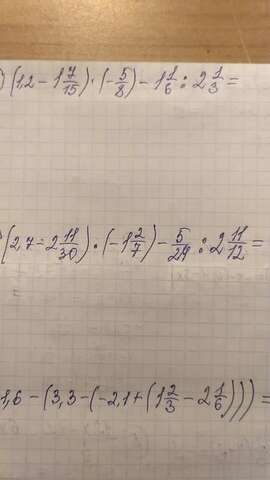 ) (1,2 - 1 7/15) · (- 5/8) - 1 1/6 : 2 1/3 =
(2,7 - 2 11/30) · (-1 2/7) - 5/24 : 2 11/12 =
1,6 - (3,3 - (-2,1 + (1 2/3 - 2 1/6))) =